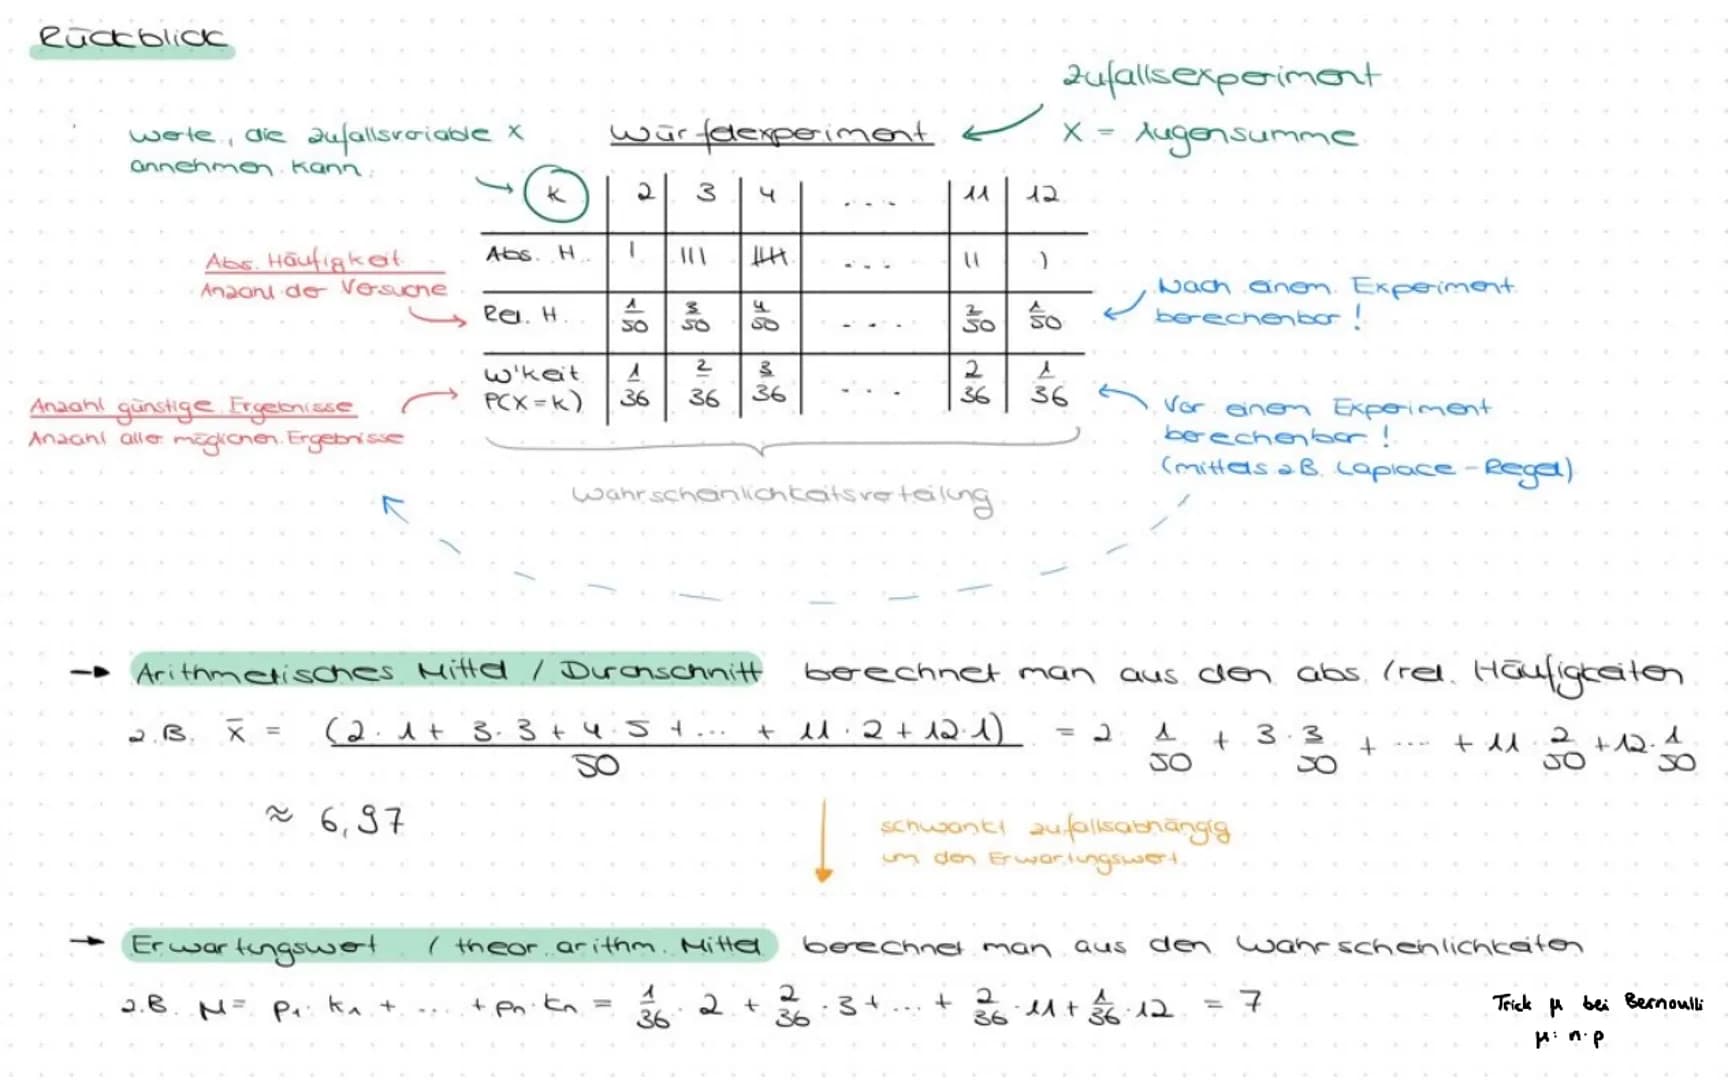 Rückblick
Zufallsexperiment
X = Augensumme
Werte, die Zufallsvariable X
annehmen kann.
Würfelexperiment
k | 2 | 3 | 4 | .... | 11 | 12
Abs. H. | I | III | IIII | ... | II | I
Rel. H. | 1/50 | 3/50 | 4/50 | .... | 2/50 | 1/50
W'keit P(X=k) | 1/36 | 2/36 | 3/36 | .... | 2/36 | 1/36
Abs. Häufigkeit
Anzahl der Versuche
Nach einem Experiment
berechenbar!
Anzahl günstige Ergebnisse
Anzahl aller möglichen Ergebnisse
Vor einem Experiment
berechenbar!
(mittels z.B. Laplace-Regel)
Wahrscheinlichkeitsverteilung
→ Arithmetisches Mittel / Durchschnitt berechnet man aus den abs./rel. Häufigkeiten
z.B. x̄ = (2·1 + 3·3 + 4·5 + ... + 11·2 + 12·1)/50 = 2·1/50 + 3·3/50 + .... + 11·2/50 + 12·1/50
≈ 6,97
schwankt zufallsabhängig
um den Erwartungswert.
→ Erwartungswert / theor. arithm. Mittel berechnet man aus den Wahrscheinlichkeiten
z.B. μ = p₁·k₁ + ... + pₙ·kₙ = 1/36·2 + 2/36·3 + ... + 2/36·11 + 1/36·12 = 7
Trick μ bei Bernoulli
μ: n·p